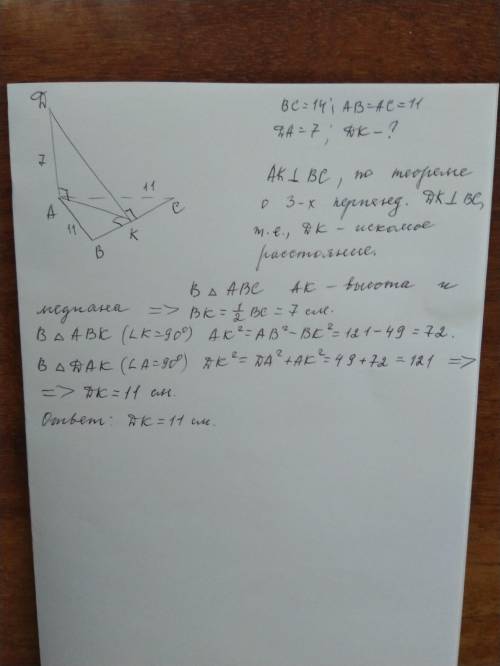 BC=14; AB=AC=11
DA=7; DK-?
AK⊥BC, по теореме
о 3-х перпенд. DK⊥BC,
т.е., DK - искомое
расстояние.
D
7
A
11
11
B
K
C
В △ ABC AK - высота и
медиана => BK = 1/2 BC = 7 см.
В △ ABK (∠K=90°) AK²=AB²-BK²=121-49=72.
В △ DAK (∠A=90°) DK²=DA²+AK²=49+72=121 =>
=> DK=11 см.
Ответ: DK=11 см.